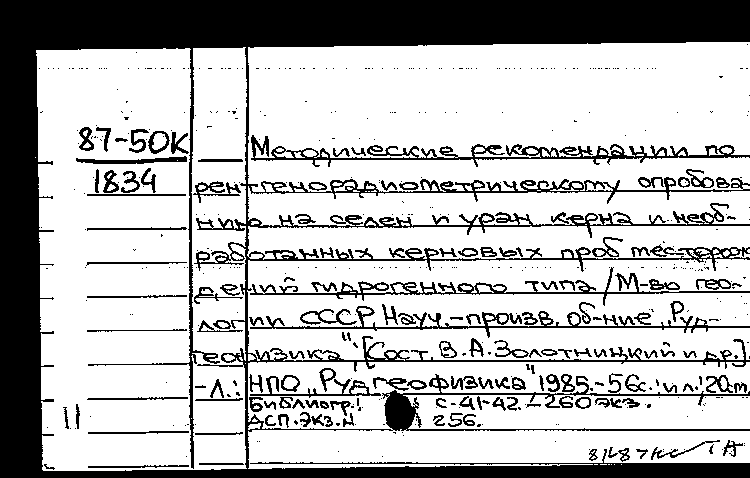 87-50К
1834
Методические рекомендации по
рентгенорадиометрическому опробова-
нию на селен и уран керна и необ-
работанных керновых проб месторож
дений гидрогенного типа / М-во гео-
логии СССР, Науч.-произв. об-ние „Руд-
геофизика", [Сост. В.А. Золотницкий и др.]
-Л.: НПО „Рудгеофизика" 1985.-56с.: ил.; 20см.
Библиогр.: с-41-42. - 260 экз.
ДСП. Экз. N 256.
11